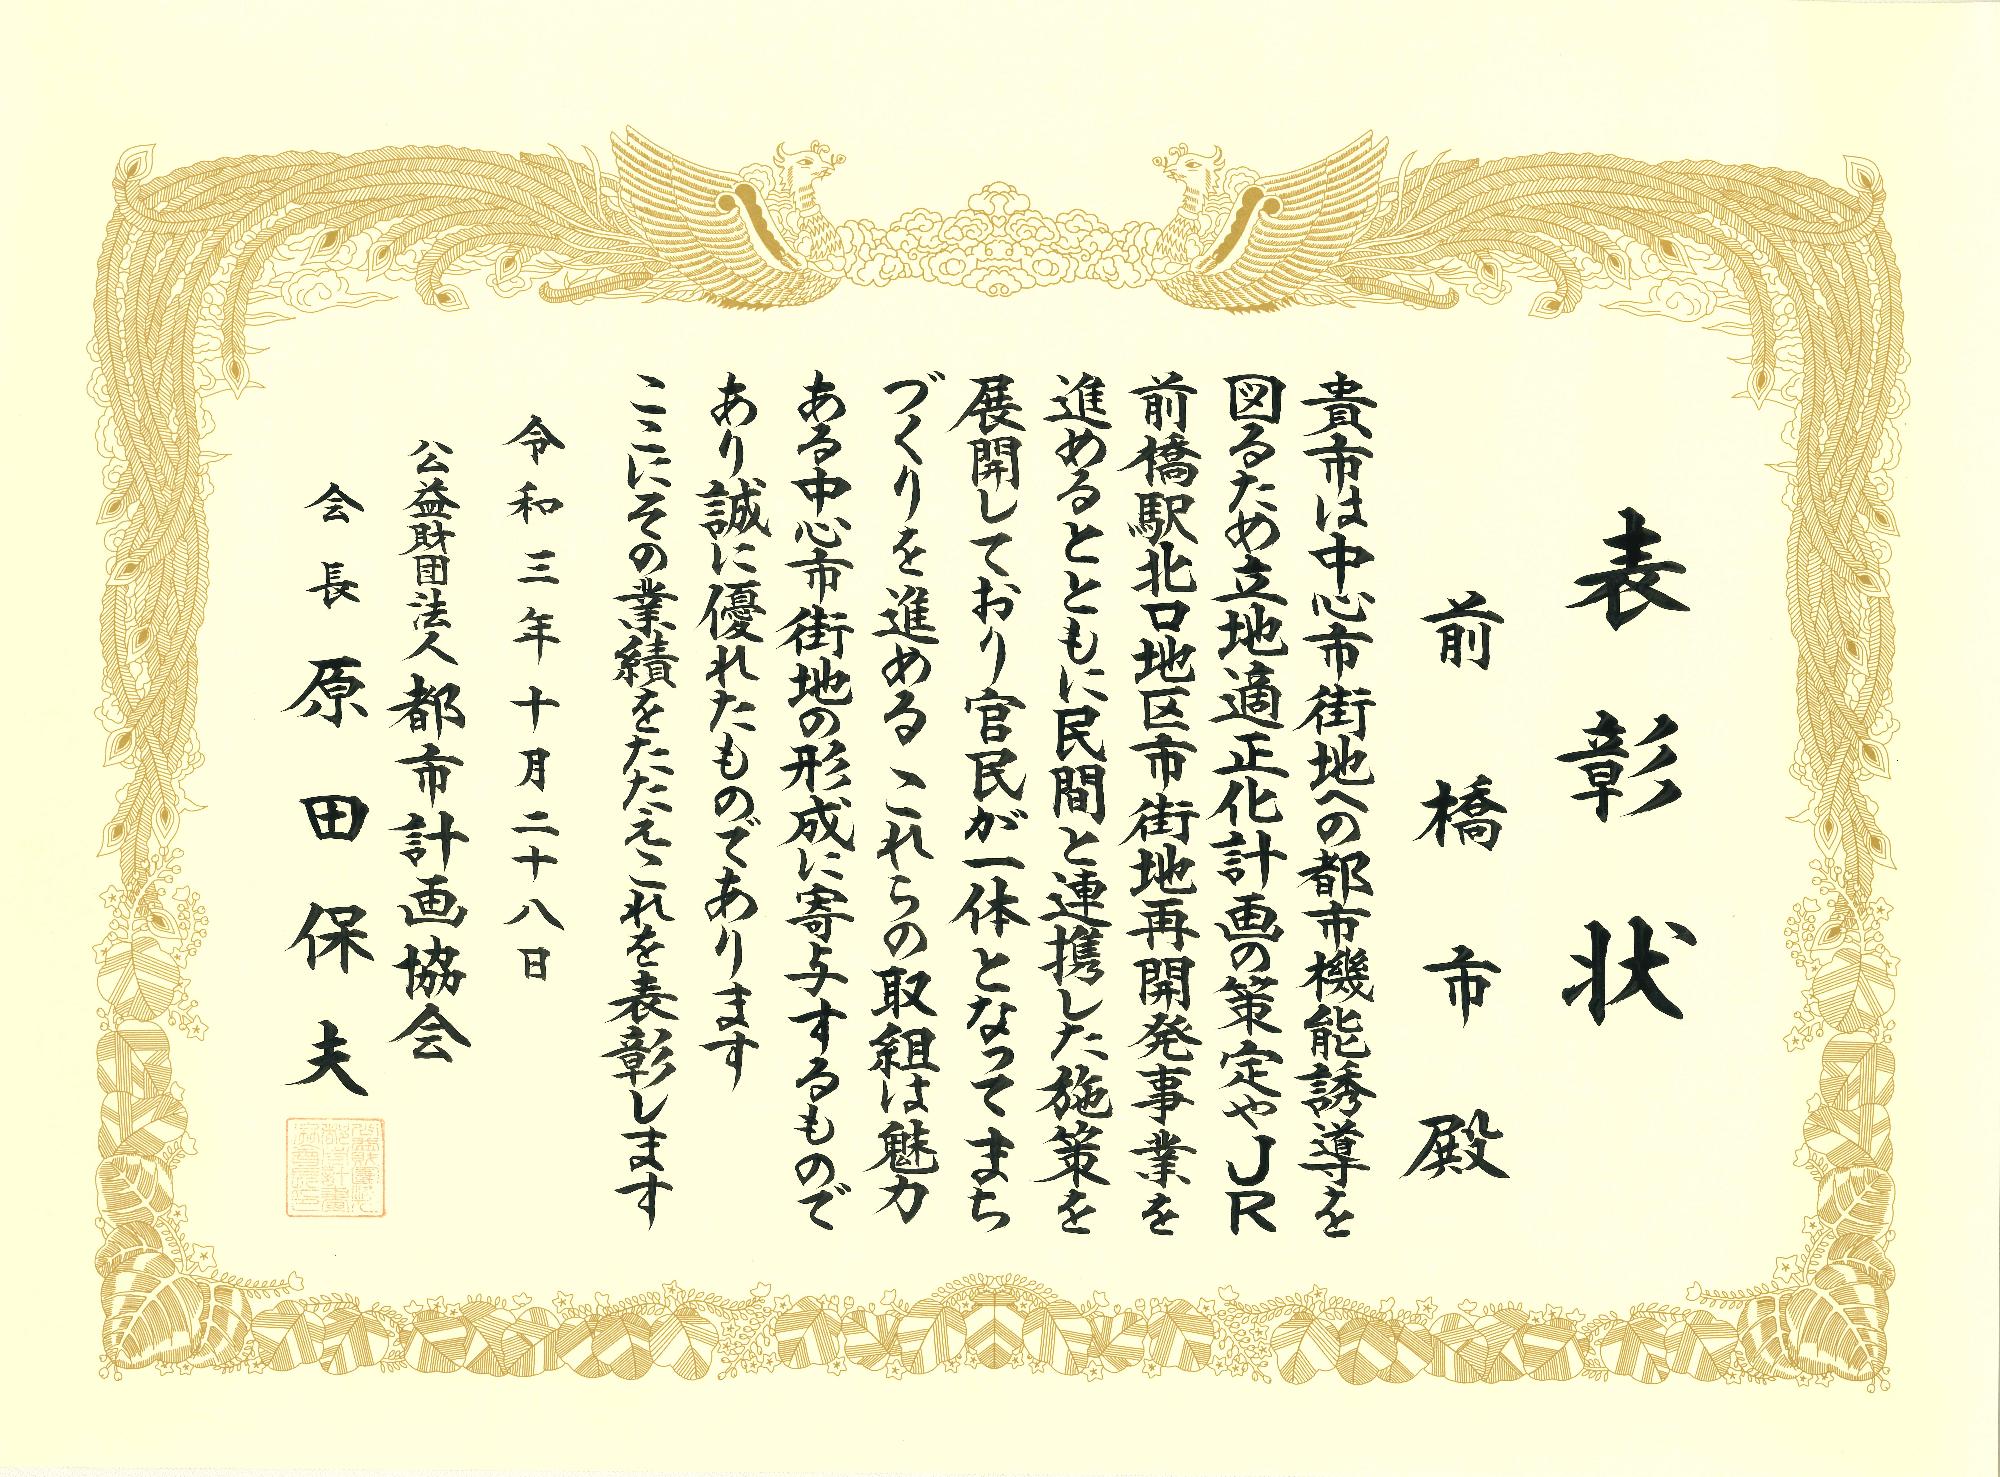 表彰状
前橋市殿
貴市は中心市街地への都市機能誘導を
図るため立地適正化計画の策定やJR
前橋駅北口地区市街地再開発事業を
進めるとともに民間と連携した施策を
展開しており官民が一体となってまち
づくりを進める これらの取組は魅力
ある中心市街地の形成に寄与するもので
あり誠に優れたものであります
ここにその業績をたたえこれを表彰します
令和三年十月二十八日
公益財団法人都市計画協会
会長 原田保夫